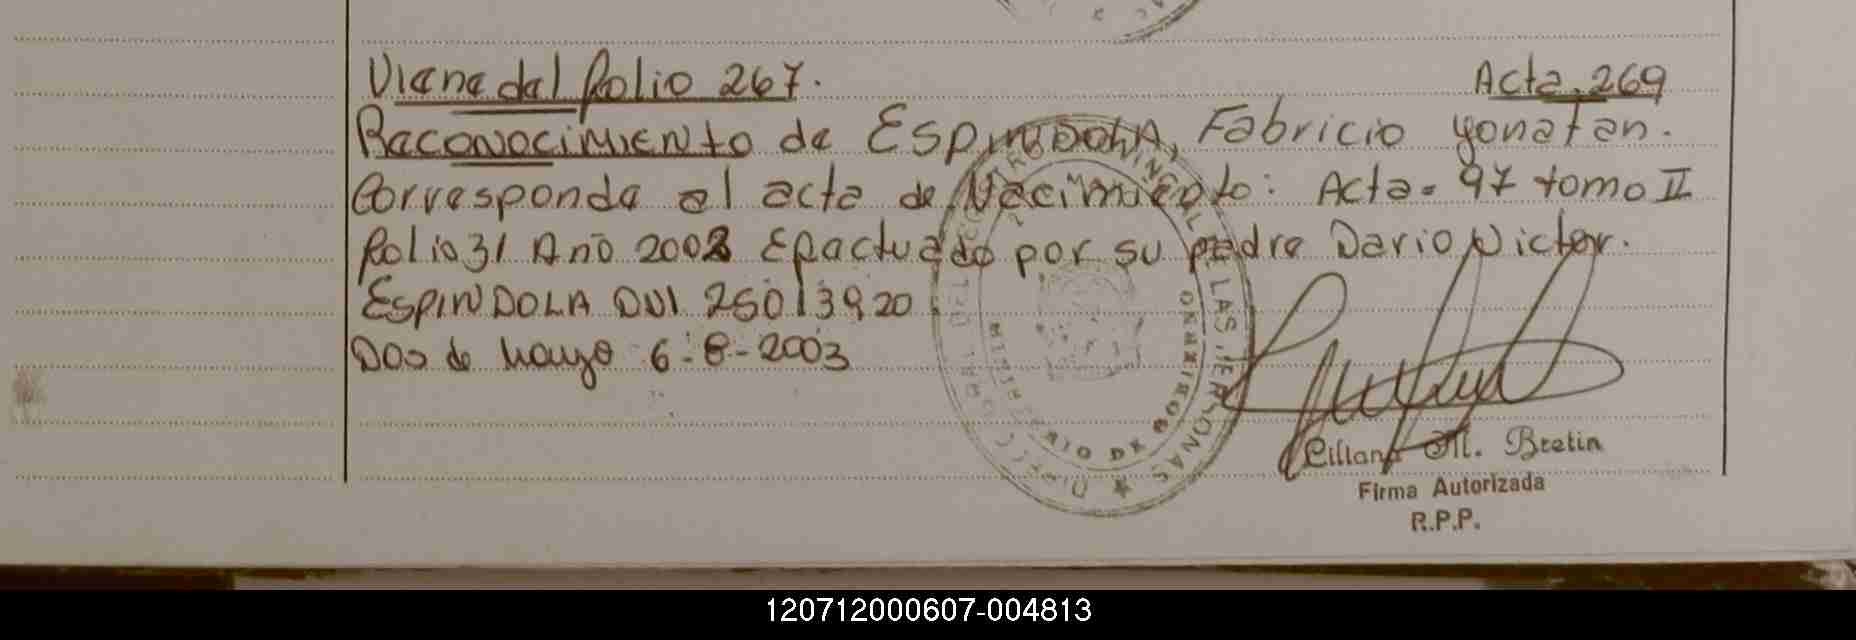 Viene del folio 267. Acta. 269
Reconocimiento de ESPINDOLA, Fabricio yonatan.
Corresponde al acta de Nacimiento: Acta = 97 tomo II
folio 31 Año 2002 Efactuado por su padre Dario Victor.
ESPINDOLA DNI 25013920
Dos de Mayo 6-8-2003
M. Bretin
Firma Autorizada
R.P.P.
120712000607-004813